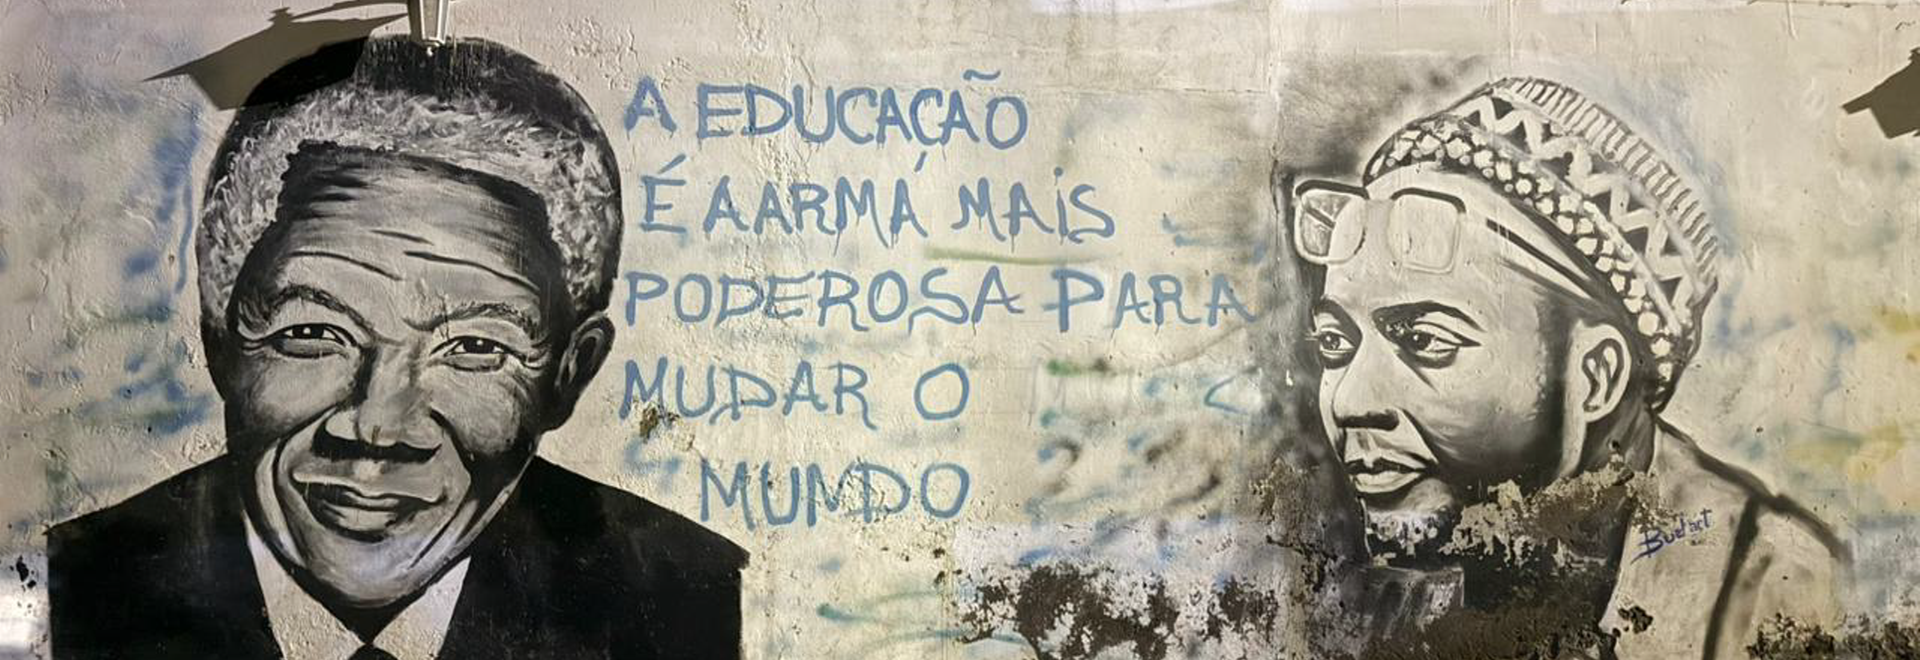 A EDUCAÇÃO
É A ARMA MAIS
PODEROSA PARA
MUDAR O
MUNDO